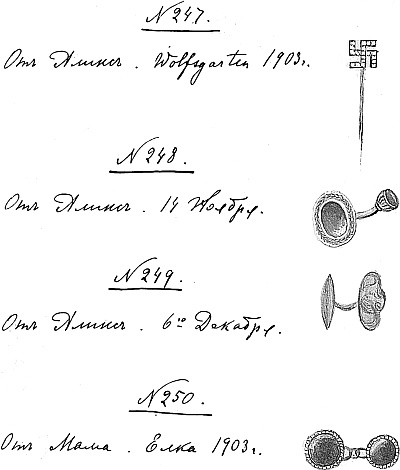 N 247.
Отъ Аликсъ. Wolfsgarten 1903 г.
N 248.
Отъ Аликсъ. 14 Ноября.
N 249.
Отъ Аликсъ. 6го Декабря.
N 250.
Отъ Мама. Елка 1903 г.